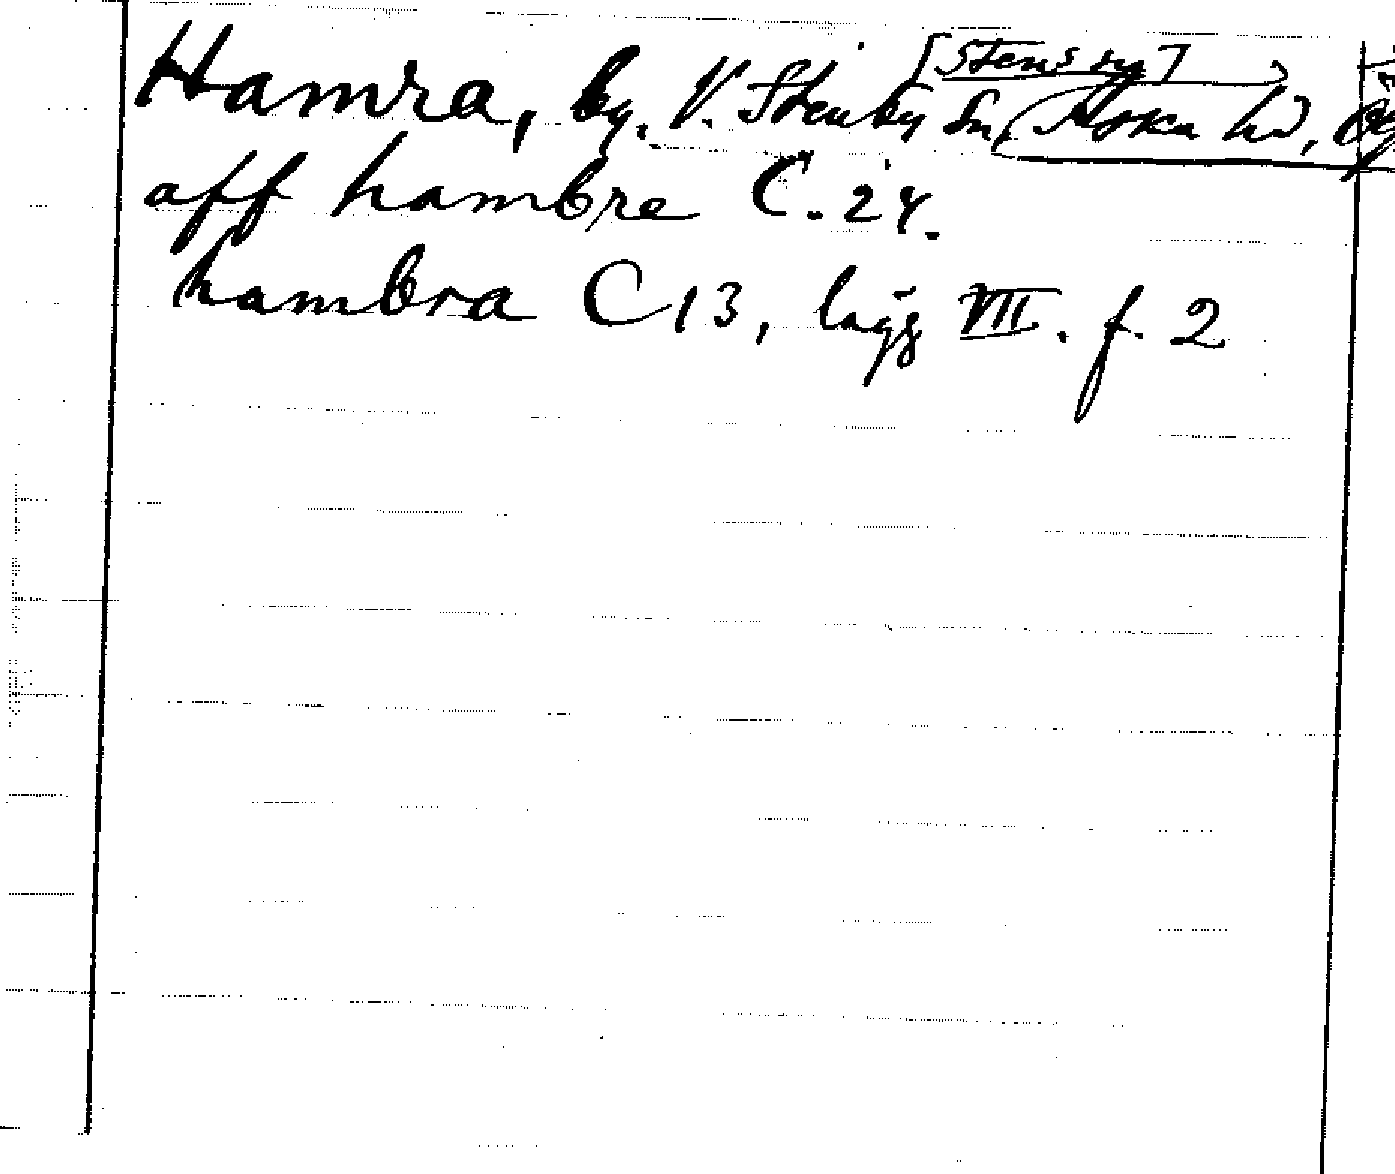 [Stens sn]
Hamra, by. V. Stenby Sn, Aska hd, Ög
aff hambre C. 24.
hambra C 13, lägg VII. f. 2